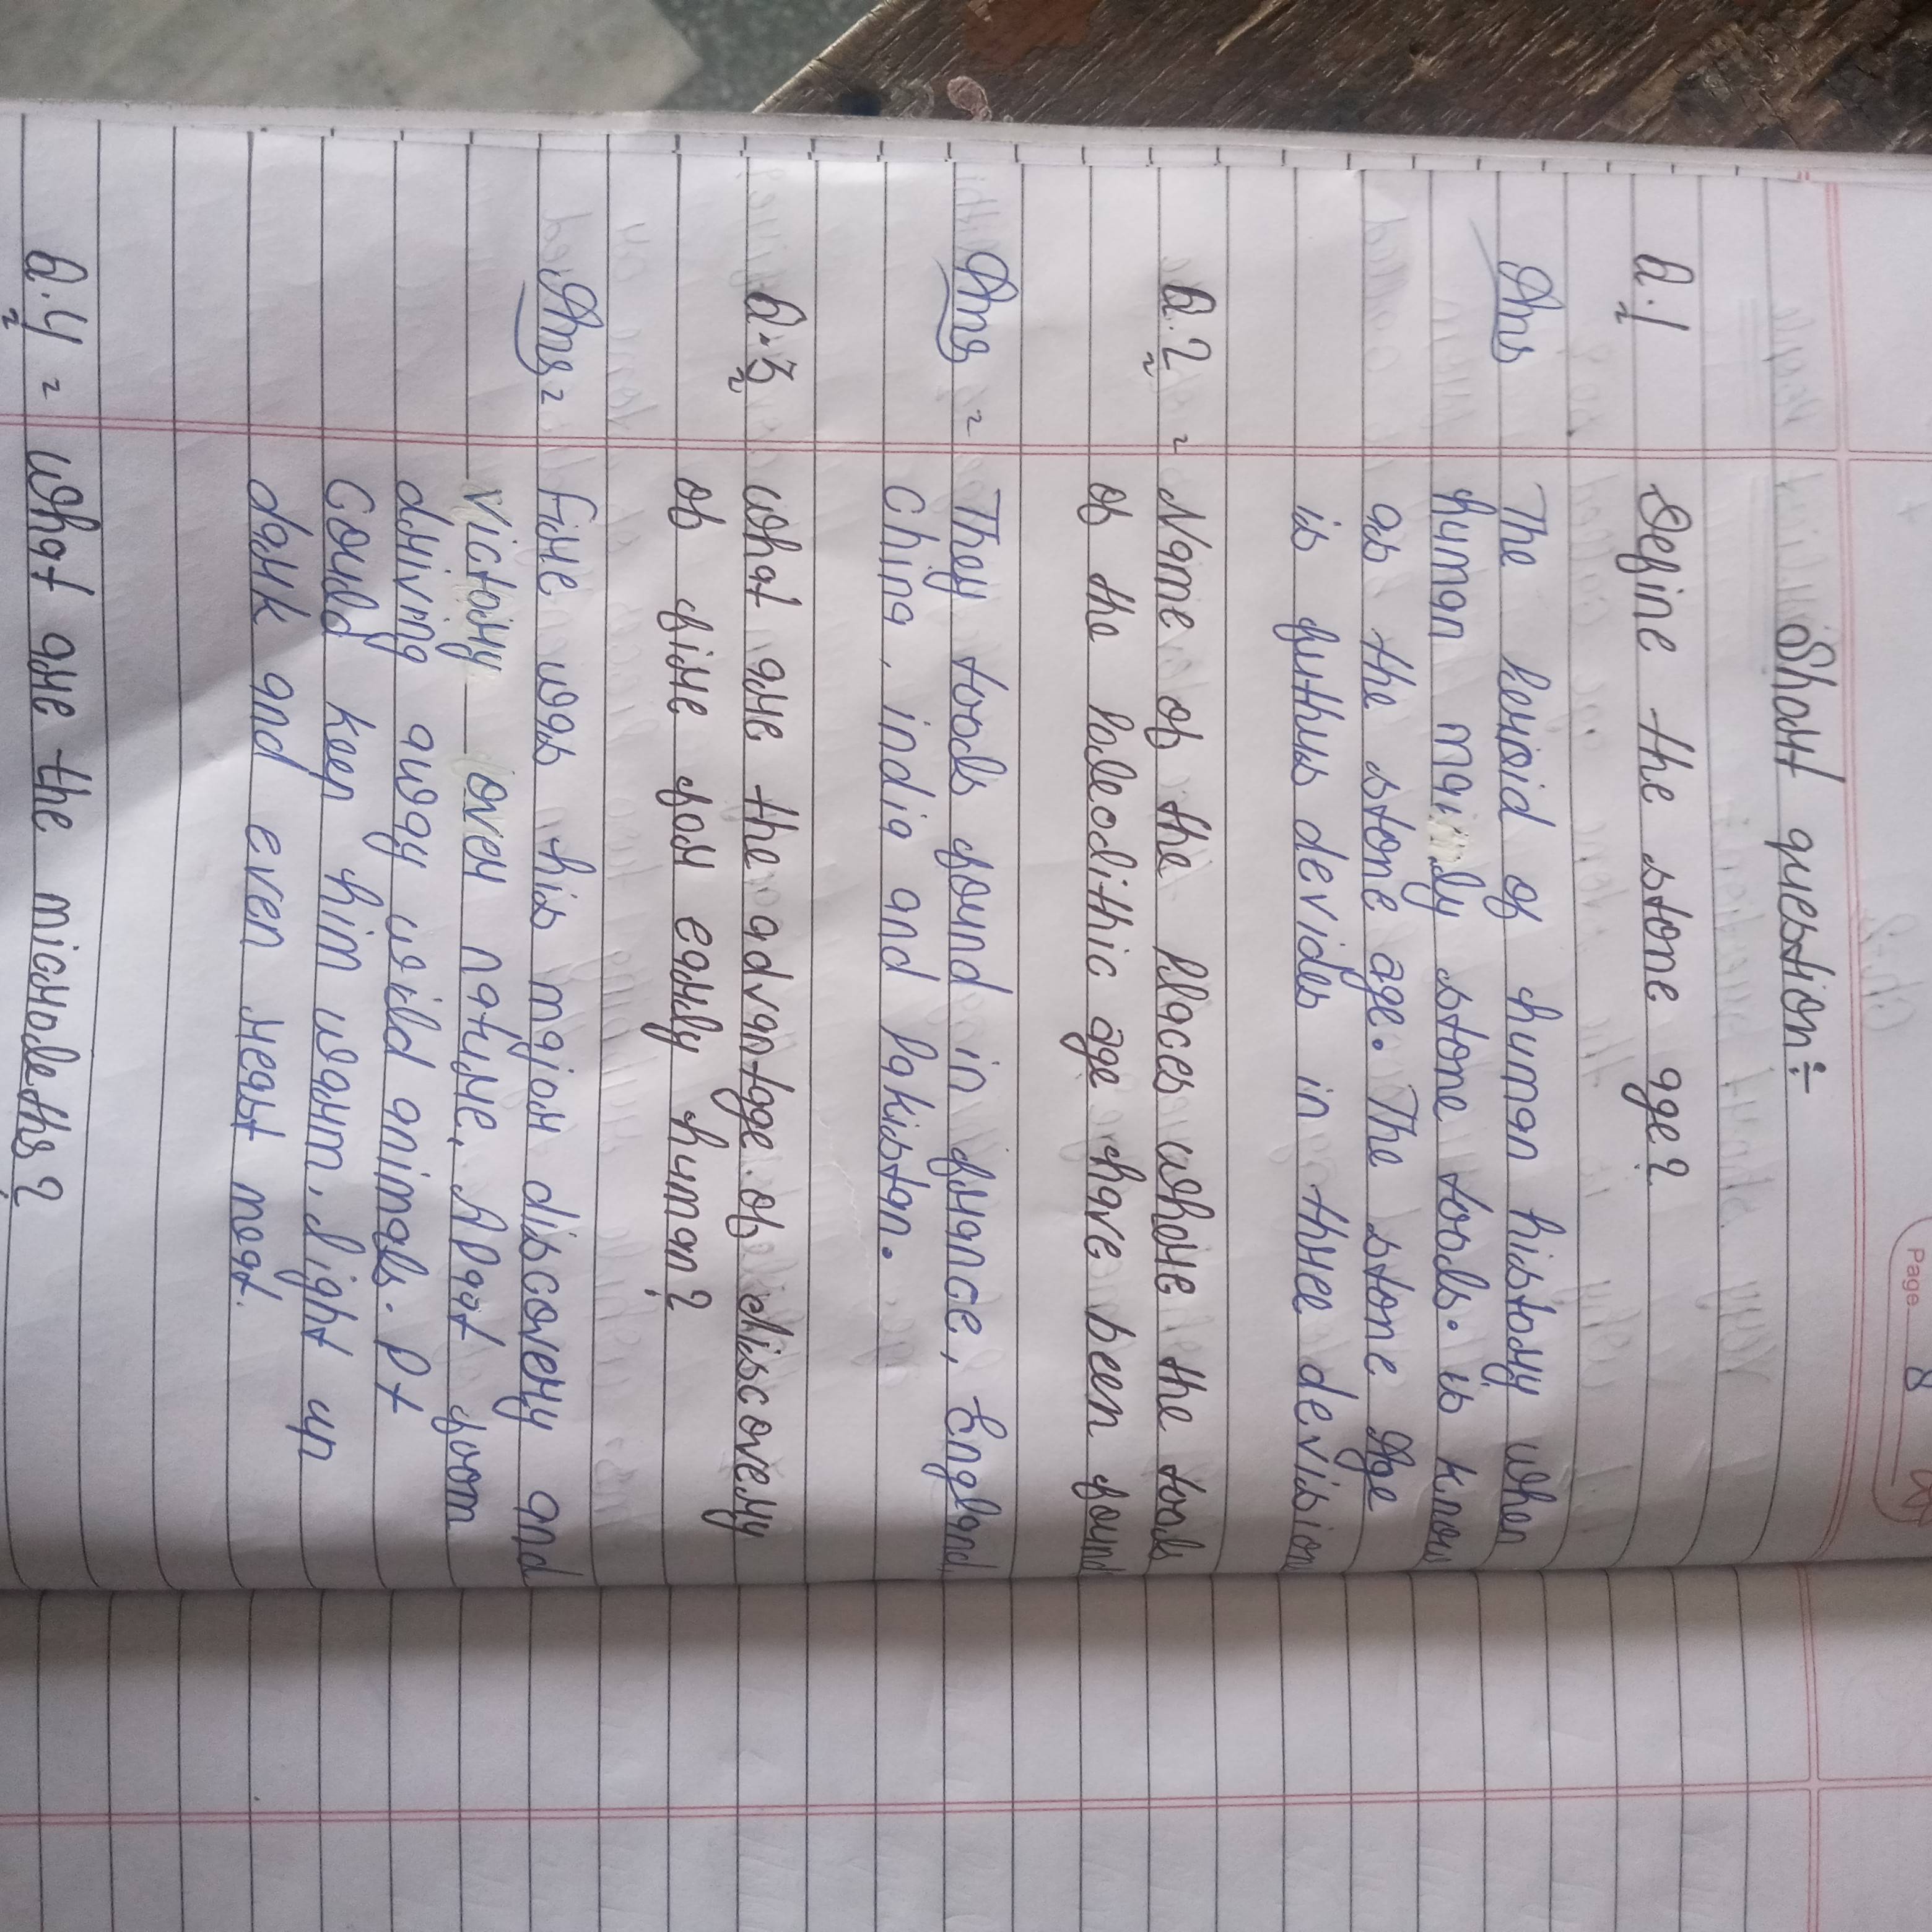 Page 8
Short question÷
Q.1 Define the stone age?
Ans The period of human history when
human mainly stone tools. is know
as the stone age. The stone Age
is futhus devides in three devision
Q.2 = Name of the places whore the tools
of the paleolithic age have been found
Ans = They tools found in france, England,
China, india and Pakistan.
Q.3 What are the advantage of discovery
of fire for early human?
Ans = Fire was his major discovery and
Victory over nature. Apart foom
driving away wild animals. It
Could keep him warm, light up
dark and even reast meat.
Q.4 = What are the microleths?